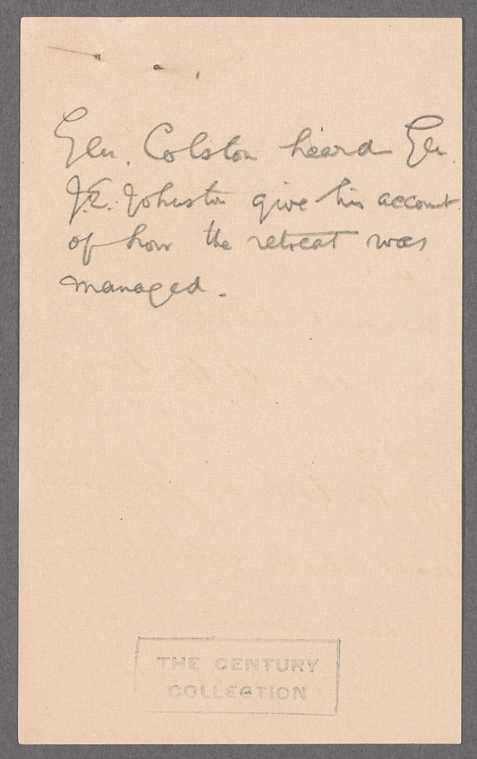 Gen. Colston heard Gen.
J.E. Johnston give his account
of how the retreat was
managed.
THE CENTURY
COLLECTION